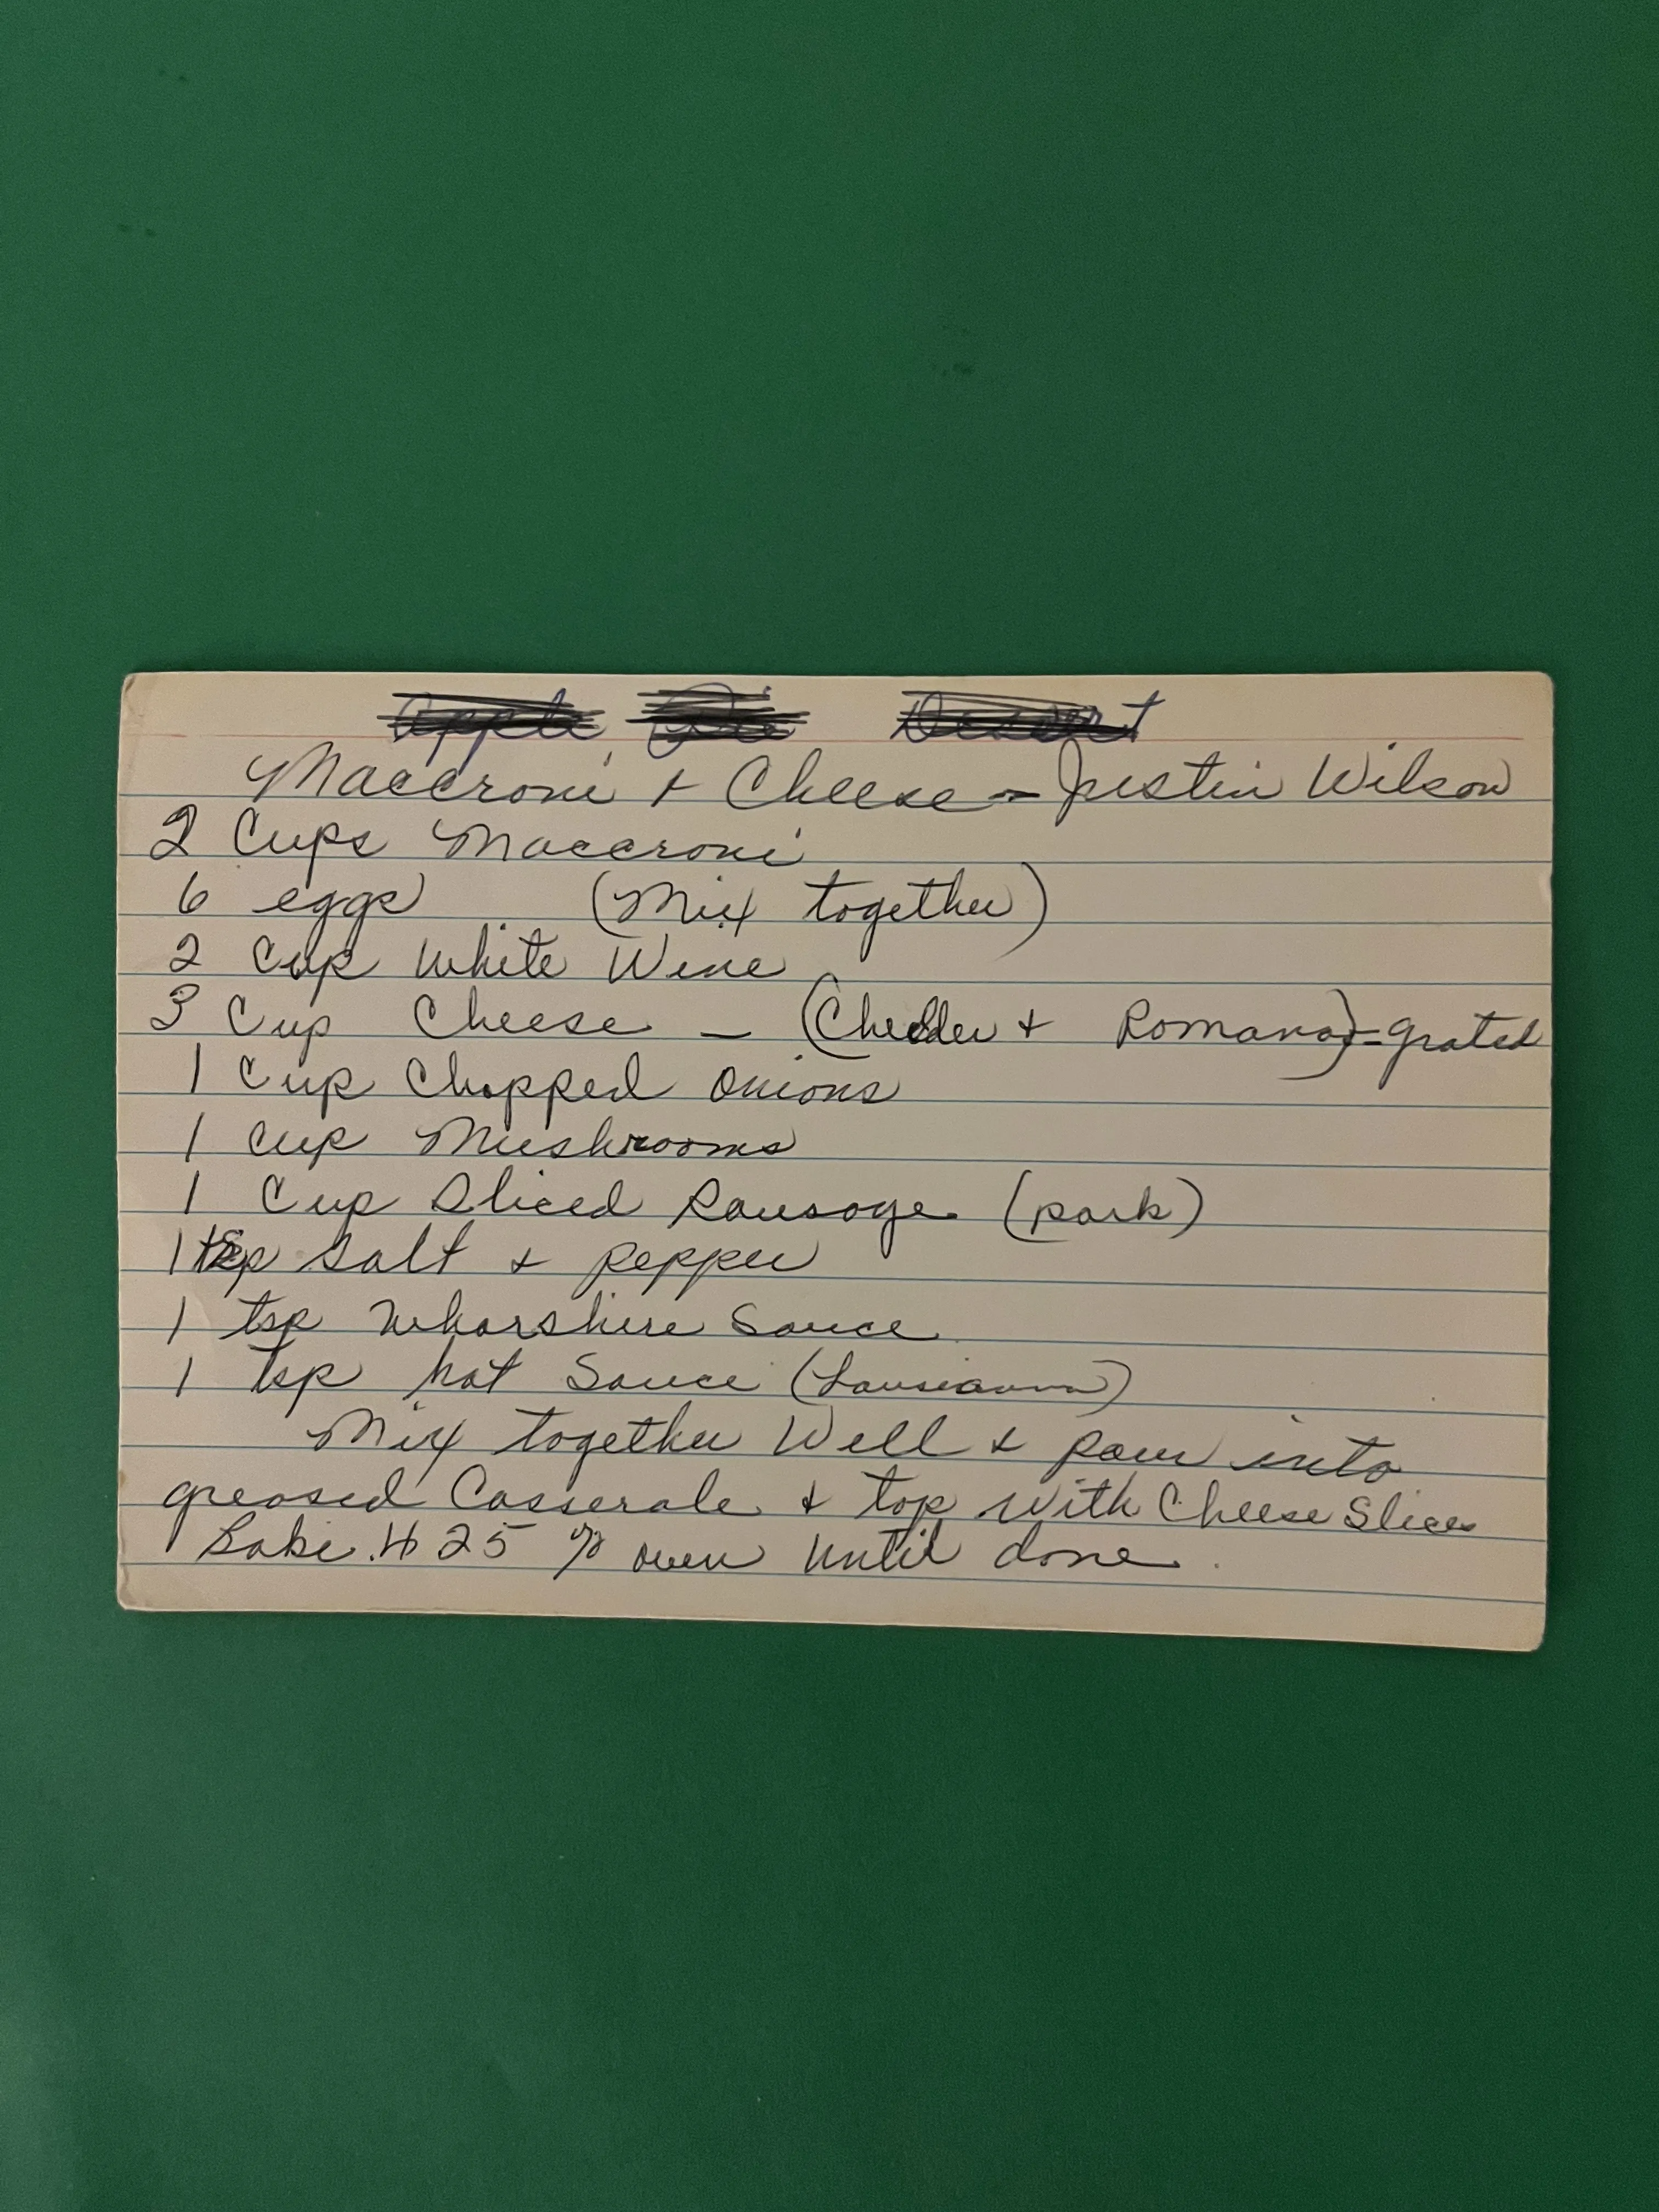 Apple Pie Desert
Maccroni + Cheese - Justin Wilson
2 Cups Maccroni
6 eggs (Mix together)
2 Cup White Wine
3 Cup Cheese - (Chedder + Romano) - grated
1 Cup Chopped Onions
1 Cup Mushrooms
1 Cup Sliced Sausage (pork)
1 tsp Salt + pepper
1 tsp Wharshire Sauce
1 tsp hot Sauce (Lousianna)
Mix together Well + pour into
greased Casserole + top with Cheese Slices
Bake 425 % oven until done.